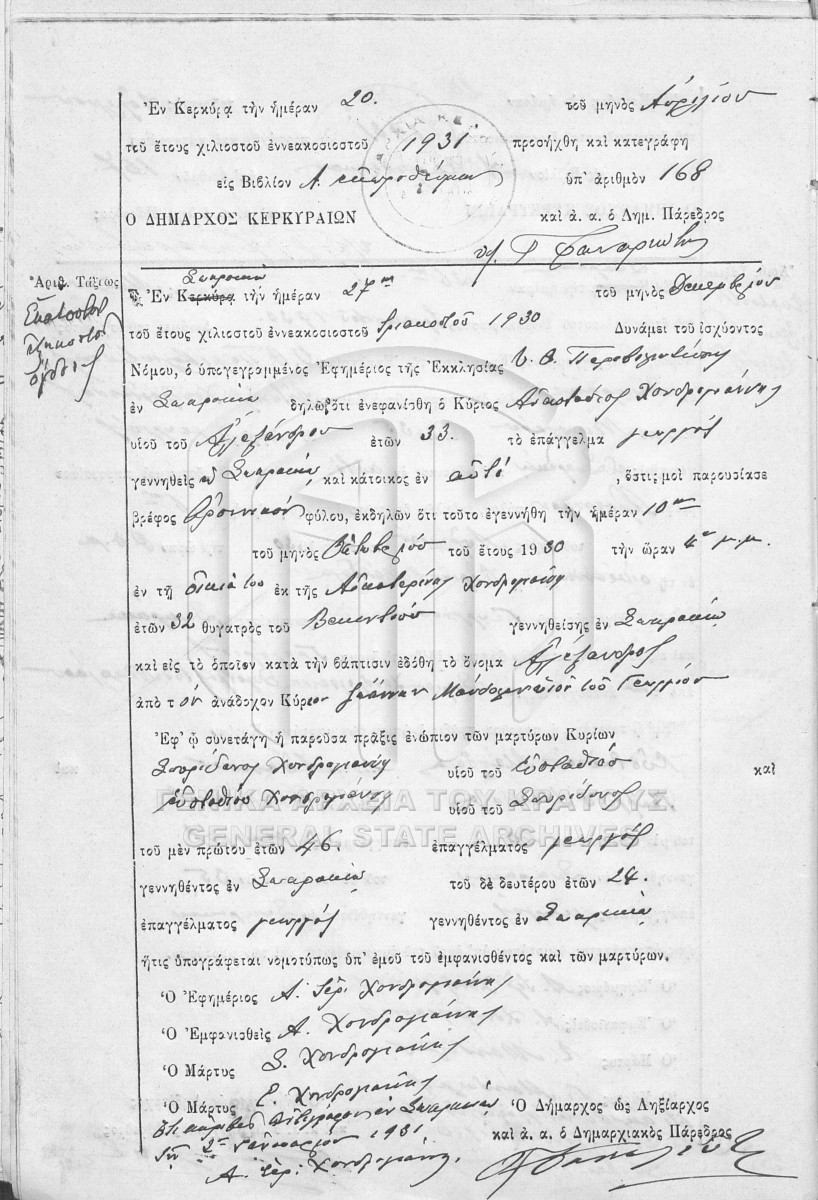 Ἐν Κερκύρᾳ τὴν ἡμέραν 20. τοῦ μηνὸς Ἀπριλίου
τοῦ ἔτους χιλιοστοῦ ἐννεακοσιοστοῦ 1931 προσήχθη καὶ κατεγράφη
εἰς Βιβλίον Α. ὑπ' ἀριθμὸν 168
Ο ΔΗΜΑΡΧΟΣ ΚΕΡΚΥΡΑΙΩΝ καὶ ἀ. ἀ. ὁ Δημ. Πάρεδρος
Ἀριθ. Τάξεως
Ἑκατοστὸς
ἑξηκοστὸς
ὄγδοος
Σπαρτερὸ
Ἐν Κερκύρᾳ τὴν ἡμέραν 27ην τοῦ μηνὸς Δεκεμβρίου
τοῦ ἔτους χιλιοστοῦ ἐννεακοσιοστοῦ τριακοστοῦ 1930 Δυνάμει τοῦ ἰσχύοντος
Νόμου, ὁ ὑπογεγραμμένος Ἐφημέριος τῆς Ἐκκλησίας Υ. Θ.
ἐν δηλῶ ὅτι ἐνεφανίσθη ὁ Κύριος Ἀναστάσιος Χονδρογιάννης
υἱοῦ τοῦ Ἀλεξάνδρου ἐτῶν 33. τὸ ἐπάγγελμα γεωργὸς
γεννηθεὶς ἐν καὶ κάτοικος ἐν αὐτῷ , ὅστις μοὶ παρουσίασε
βρέφος ἀρσενικοῦ φύλου, ἐκδηλῶν ὅτι τοῦτο ἐγεννήθη τὴν ἡμέραν 10ην
τοῦ μηνὸς Ὀκτωβρίου τοῦ ἔτους 1930 τὴν ὥραν 4ην μ.μ.
ἐν τῇ οἰκίᾳ του ἐκ τῆς Αἰκατερίνης Χονδρογιάννη
ἐτῶν 32 θυγατρὸς τοῦ Βικεντίου γεννηθείσης ἐν
καὶ εἰς τὸ ὁποῖον κατὰ τὴν βάπτισιν ἐδόθη τὸ ὄνομα Ἀλέξανδρος
ἀπὸ τὸν ἀνάδοχον Κύριον Ἰωάννην τοῦ Γεωργίου
Ἐφ' ᾧ συνετάγη ἡ παροῦσα πρᾶξις ἐνώπιον τῶν μαρτύρων Κυρίων
Σπυρίδωνος Χονδρογιάννη υἱοῦ τοῦ Εὐσταθίου καὶ
Εὐσταθίου Χονδρογιάννη υἱοῦ τοῦ Σπυρίδωνος
ΓΕΝΙΚΑ ΑΡΧΕΙΑ ΤΟΥ ΚΡΑΤΟΥΣ
GENERAL STATE ARCHIVES
τοῦ μὲν πρώτου ἐτῶν 46. ἐπαγγέλματος γεωργὸς
γεννηθέντος ἐν τοῦ δὲ δευτέρου ἐτῶν 24.
ἐπαγγέλματος γεωργὸς γεννηθέντος ἐν
ἥτις ὑπογράφεται νομοτύπως ὑπ' ἐμοῦ τοῦ ἐμφανισθέντος καὶ τῶν μαρτύρων.
Ὁ Ἐφημέριος Α. Ἱερ. Χονδρογιάννης
Ὁ Ἐμφανισθεὶς Α. Χονδρογιάννης
Ὁ Μάρτυς Σ. Χονδρογιάννης
Ὁ Μάρτυς Ε. Χονδρογιάννης
Ὁ Δήμαρχος ὡς Ληξίαρχος
τῇ 2ᾳ Ἰανουαρίου 1931 καὶ ἀ. ἀ. ὁ Δημαρχιακὸς Πάρεδρος
Α. Ἱερ. Χονδρογιάννης